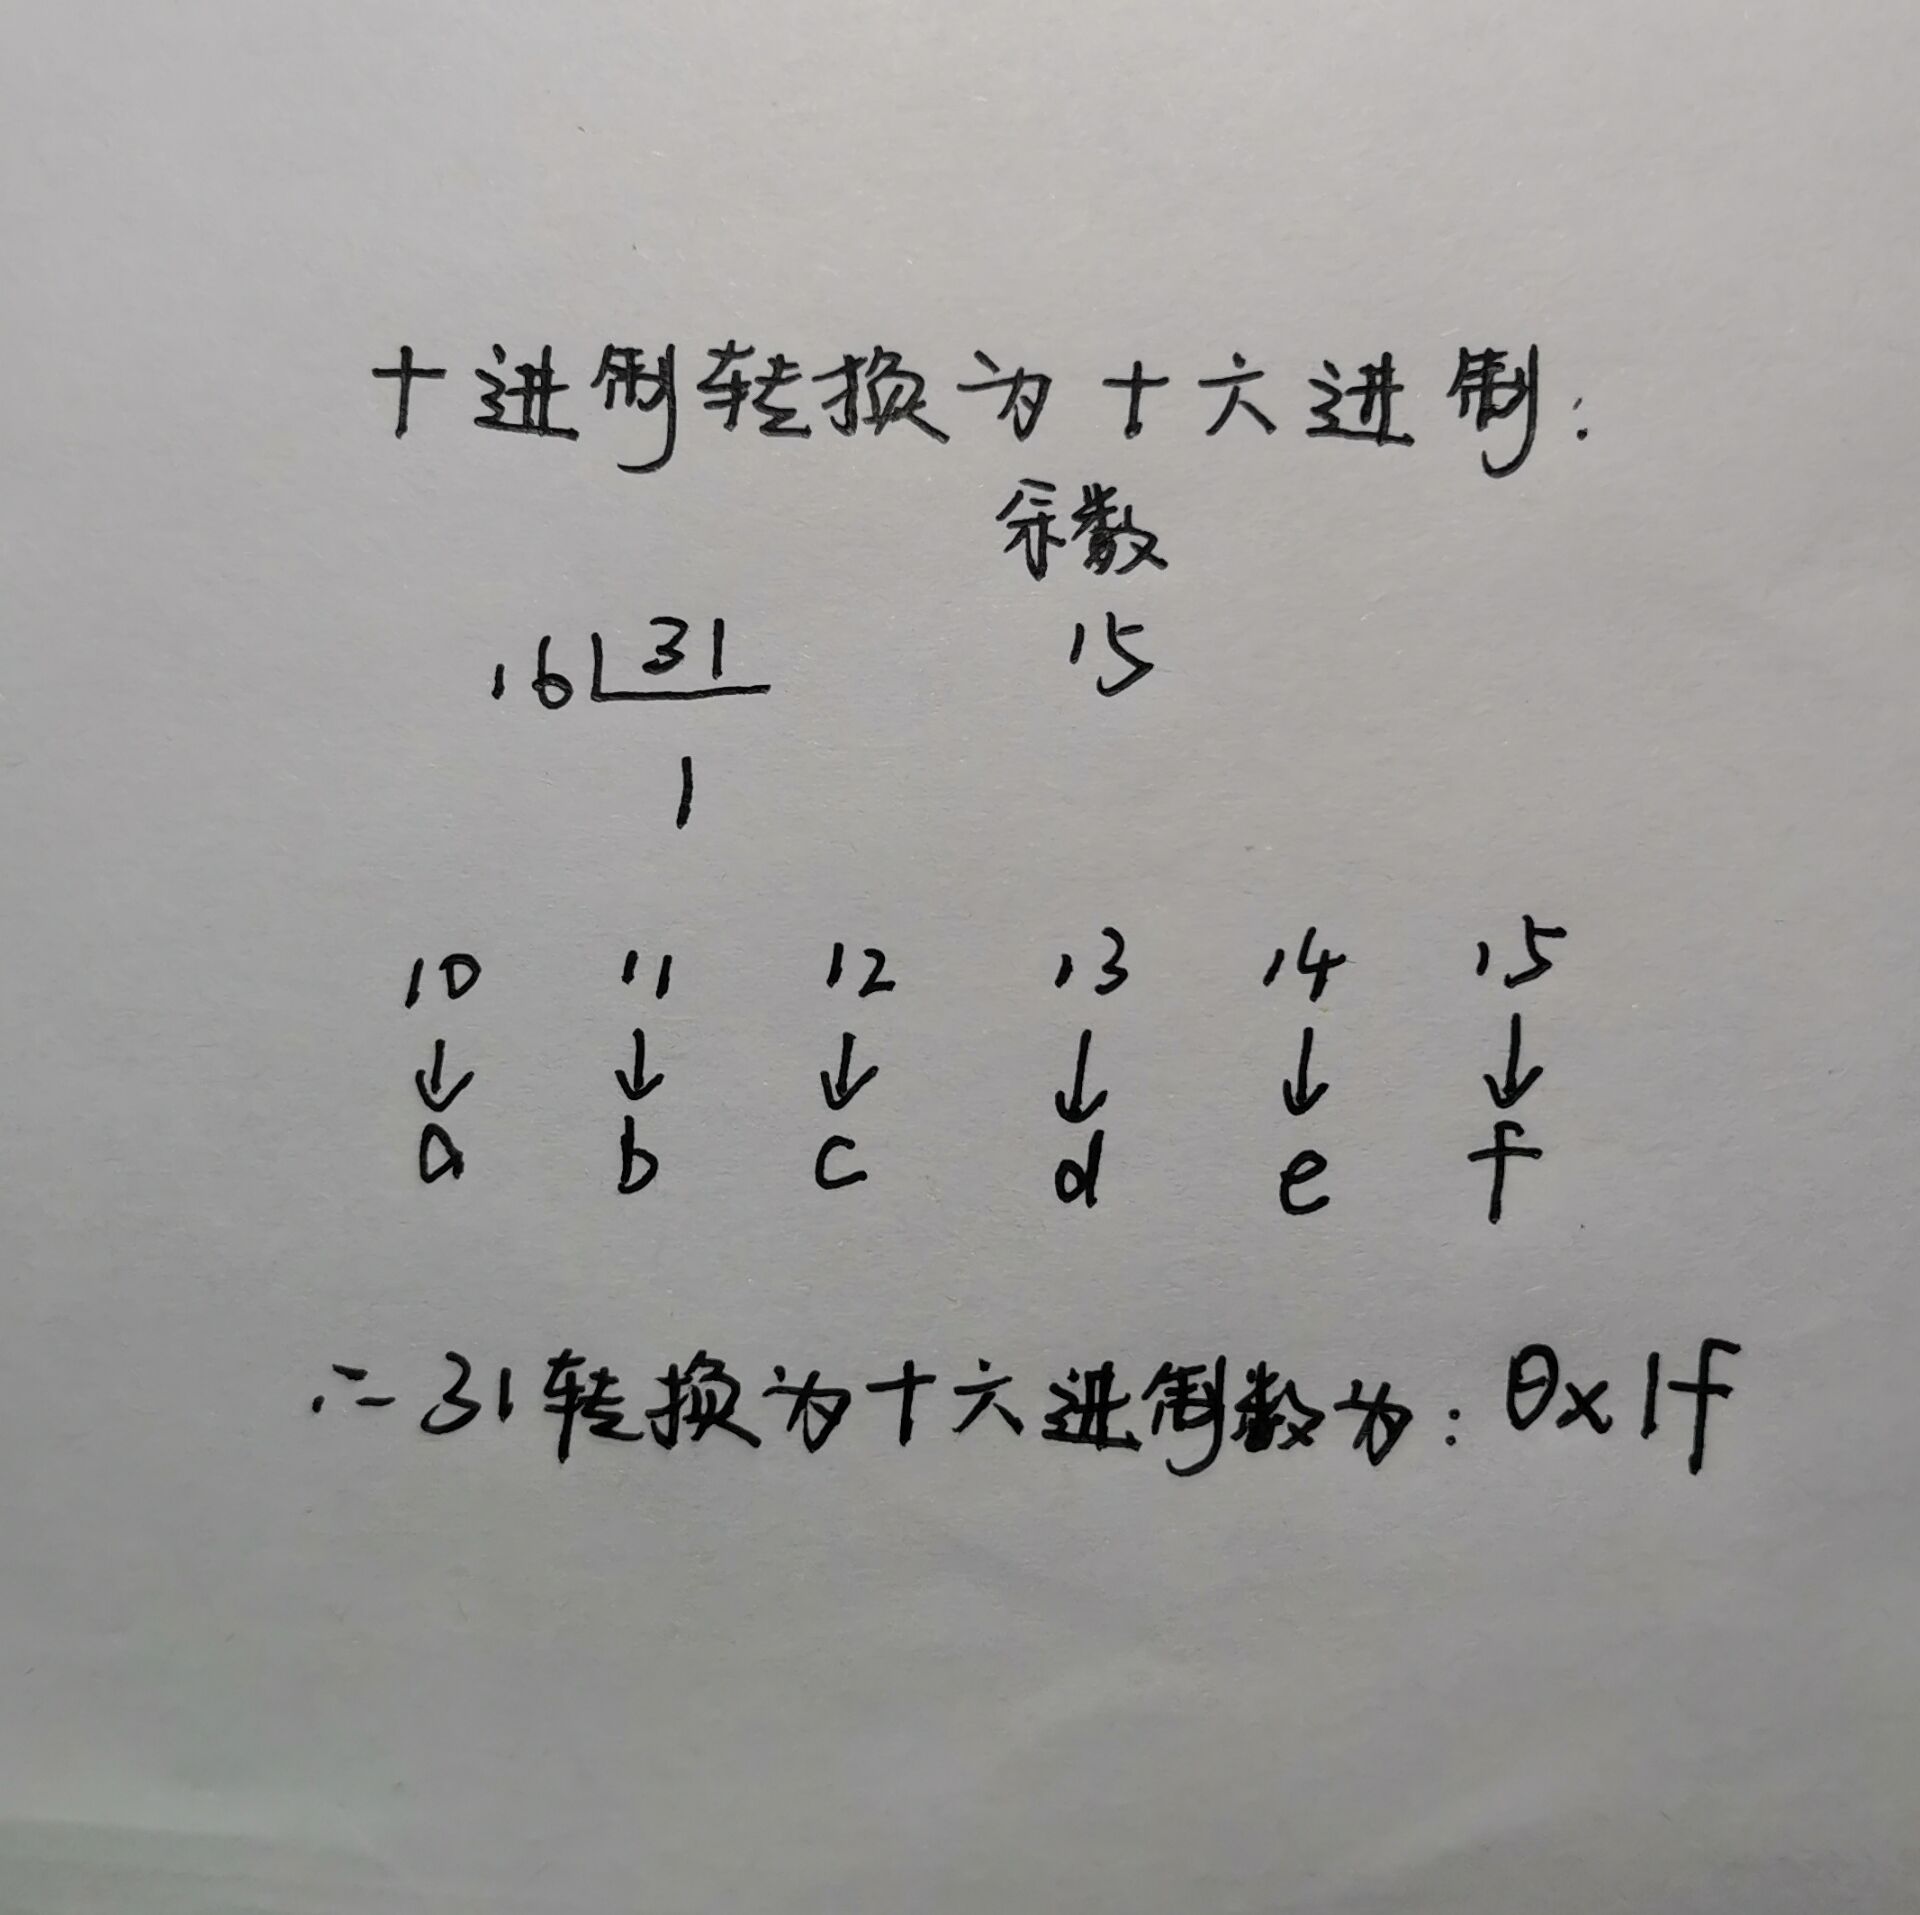 十进制转换为十六进制:
余数
16 31 15
1
10 11 12 13 14 15
↓ ↓ ↓ ↓ ↓ ↓
a b c d e f
∴31转换为十六进制数为:0x1f